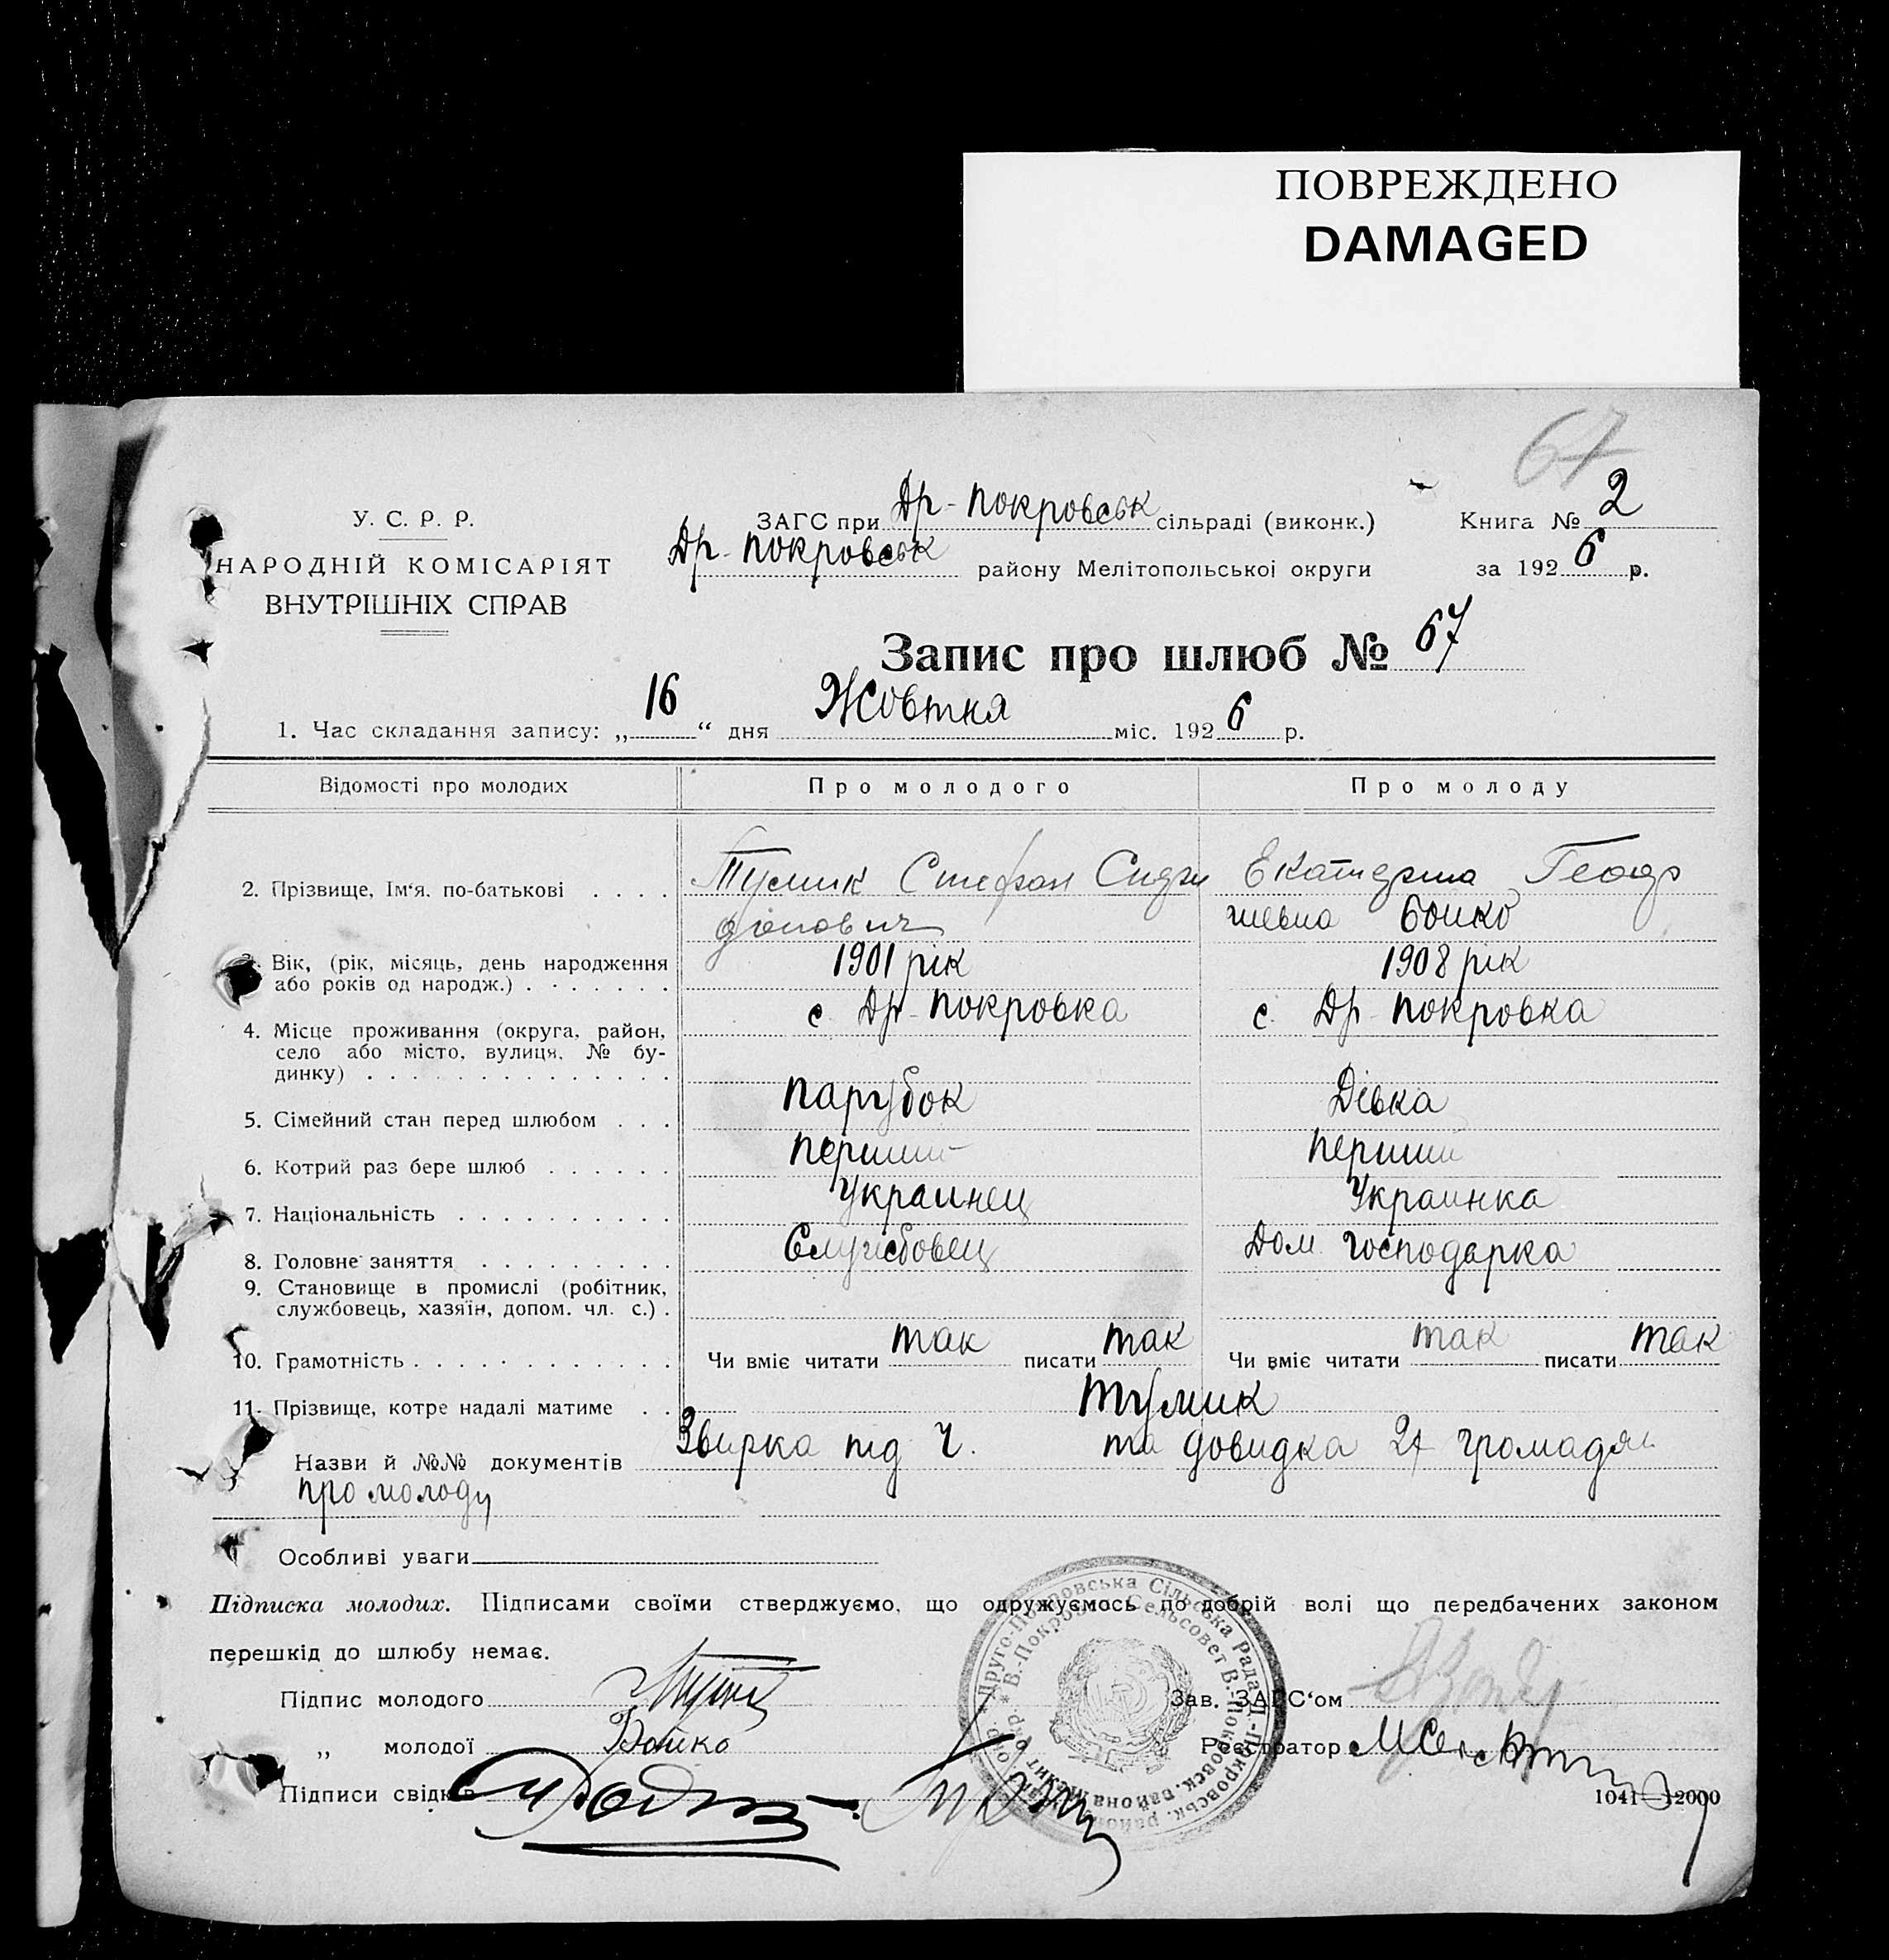 ПОВРЕЖДЕНО
DAMAGED
67
У. С. Р. Р.
НАРОДНІЙ КОМІСАРІЯТ
ВНУТРІШНІХ СПРАВ
ЗАГС при Др-Покровськ сільраді (виконк.)
Др-Покровськ району Мелітопольської округи
Книга № 2
за 1926 р.
Запис про шлюб № 67
1. Час складання запису: „16“ дня Жовтня міс. 1926 р.
Відомості про молодих
Про молодого
Про молоду
2. Прізвище, Ім‘я, по-батькові . . . .
Тумик Стефан Спири
доνович
Екатерина Геор
гиевна Бойко
3. Вік, (рік, місяць, день народження
або років од народж.) . . . . . . .
1901 рік
1908 рік
4. Місце проживання (округа, район,
село або місто, вулиця, № бу-
динку) . . . . . . . . . . . . . .
с. Др-Покровка
с. Др-Покровка
5. Сімейний стан перед шлюбом . . .
Парубок
Дівка
6. Котрий раз бере шлюб . . . . . .
Перший
Перший
7. Національність . . . . . . . . . .
Украинец
Украинка
8. Головне заняття . . . . . . . . .
Службовец
Дом. господарка
9. Становище в промислі (робітник,
службовець, хазяїн, допом. чл. с.) .
10. Грамотність . . . . . . . . . . . .
Чи вміє читати так писати так
Чи вміє читати так писати так
11. Прізвище, котре надалі матиме . .
Тумик
Назви й №№ документів Звирка під Ч. та довидка 2х громадян
про молоду
Особливі уваги
Підписка молодих. Підписами своїми стверджуємо, що одружуємось по добрій волі що передбачених законом
перешкід до шлюбу немає.
Підпис молодого
„ молодої Бойко
Підписи свідків
Зав. ЗАГС‘ом
Реєстратор
1041—12000
Друго-Покровська Сільська Рада Д.-Покровськ. район
В.-Покровск. Сельсовет В.-Покровск. района Мелит. окр.